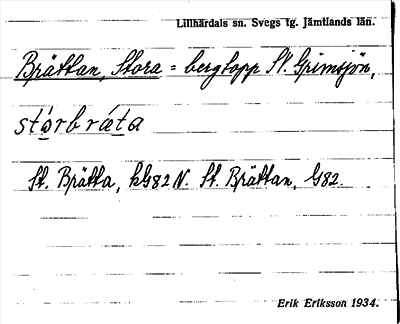 Lillhärdals sn. Svegs tg. Jämtlands län.
Brättan, Stora = bergtopp St. Grimsjön,
stórbrǽta
St. Brätta, kG82 N. St. Brättan, G82.
Erik Eriksson 1934.